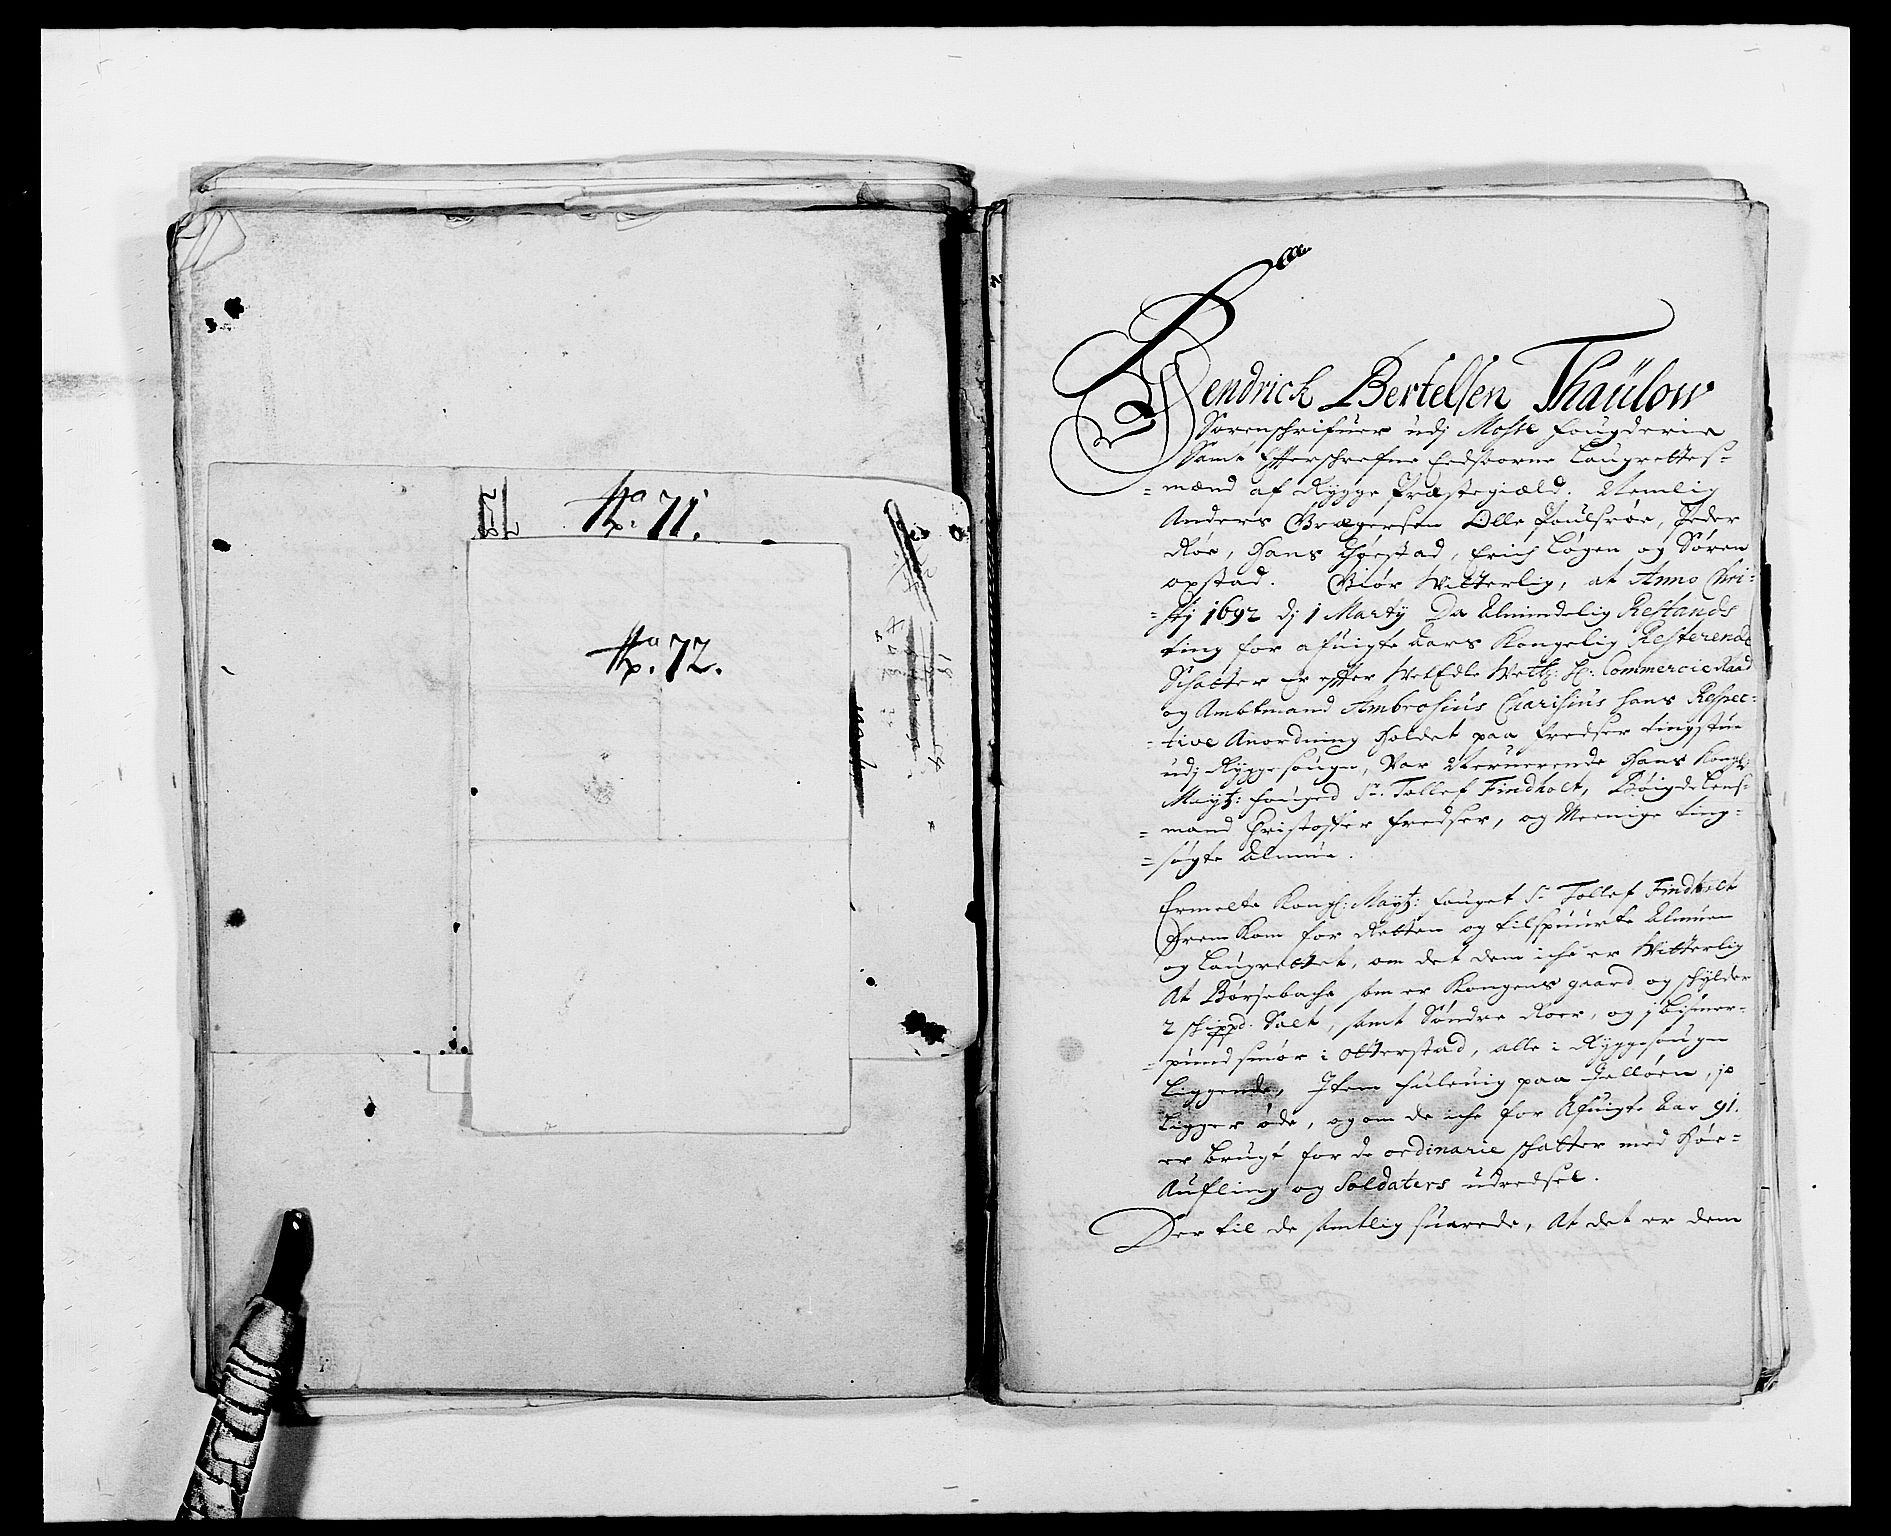 No. 71.
No. 72.
Hendrick Bertelsen Thaülow
Sorenschrifuer udj Mosse fougderie
Samt Efterschrefne Eedsoorne Laugrettes-
mænd af Rygge Præstegiæld. Nemlig
Anders Olle Poulsrøe, Peder
Røe, Hans Erich Løgen og Søren
opstad. Giør Witterlig, at Anno Chri-
stj 1692 dj 1 Martij Da Almindelig Restands
ting for afuigte Aars Kongelig Resterende
Schatter Er efter WelEdle Hr: Commercie Raad
og Ambtmand Ambrosius Charisius hans Respec-
tive Anordning holdet paa Fredser tingstue
udj Ryggesougn, War Neruerende Hans Kongl:
Mayts: fouged Sr. Tollef Findholt, Bøigdelens-
mand Christoffer Fredser, og Meenige ting-
søgte Almue.
Ermelte Kongl: Mayts: fouget Sr. Tollef Findholt
frem Kom for Retten og tilspuurte Almuen
og Laugrettet, om det dem iche er Witterlig
At Børsebache som er Kongens gaard og schylder
2 schippd. Salt, samt Søndre Roer, og 1 bismer-
pund smør i Otterstad, alle i Ryggesougn
Liggende, Item fuleuig paa Jelløen, jo
Ligger øde, og om de iche for Afuigte Aar 91.
er brugt for de ordinarie schatter med Høe-
Aufling og Soldaters udredsel.
Der til de samtlig suarede, At det er dem